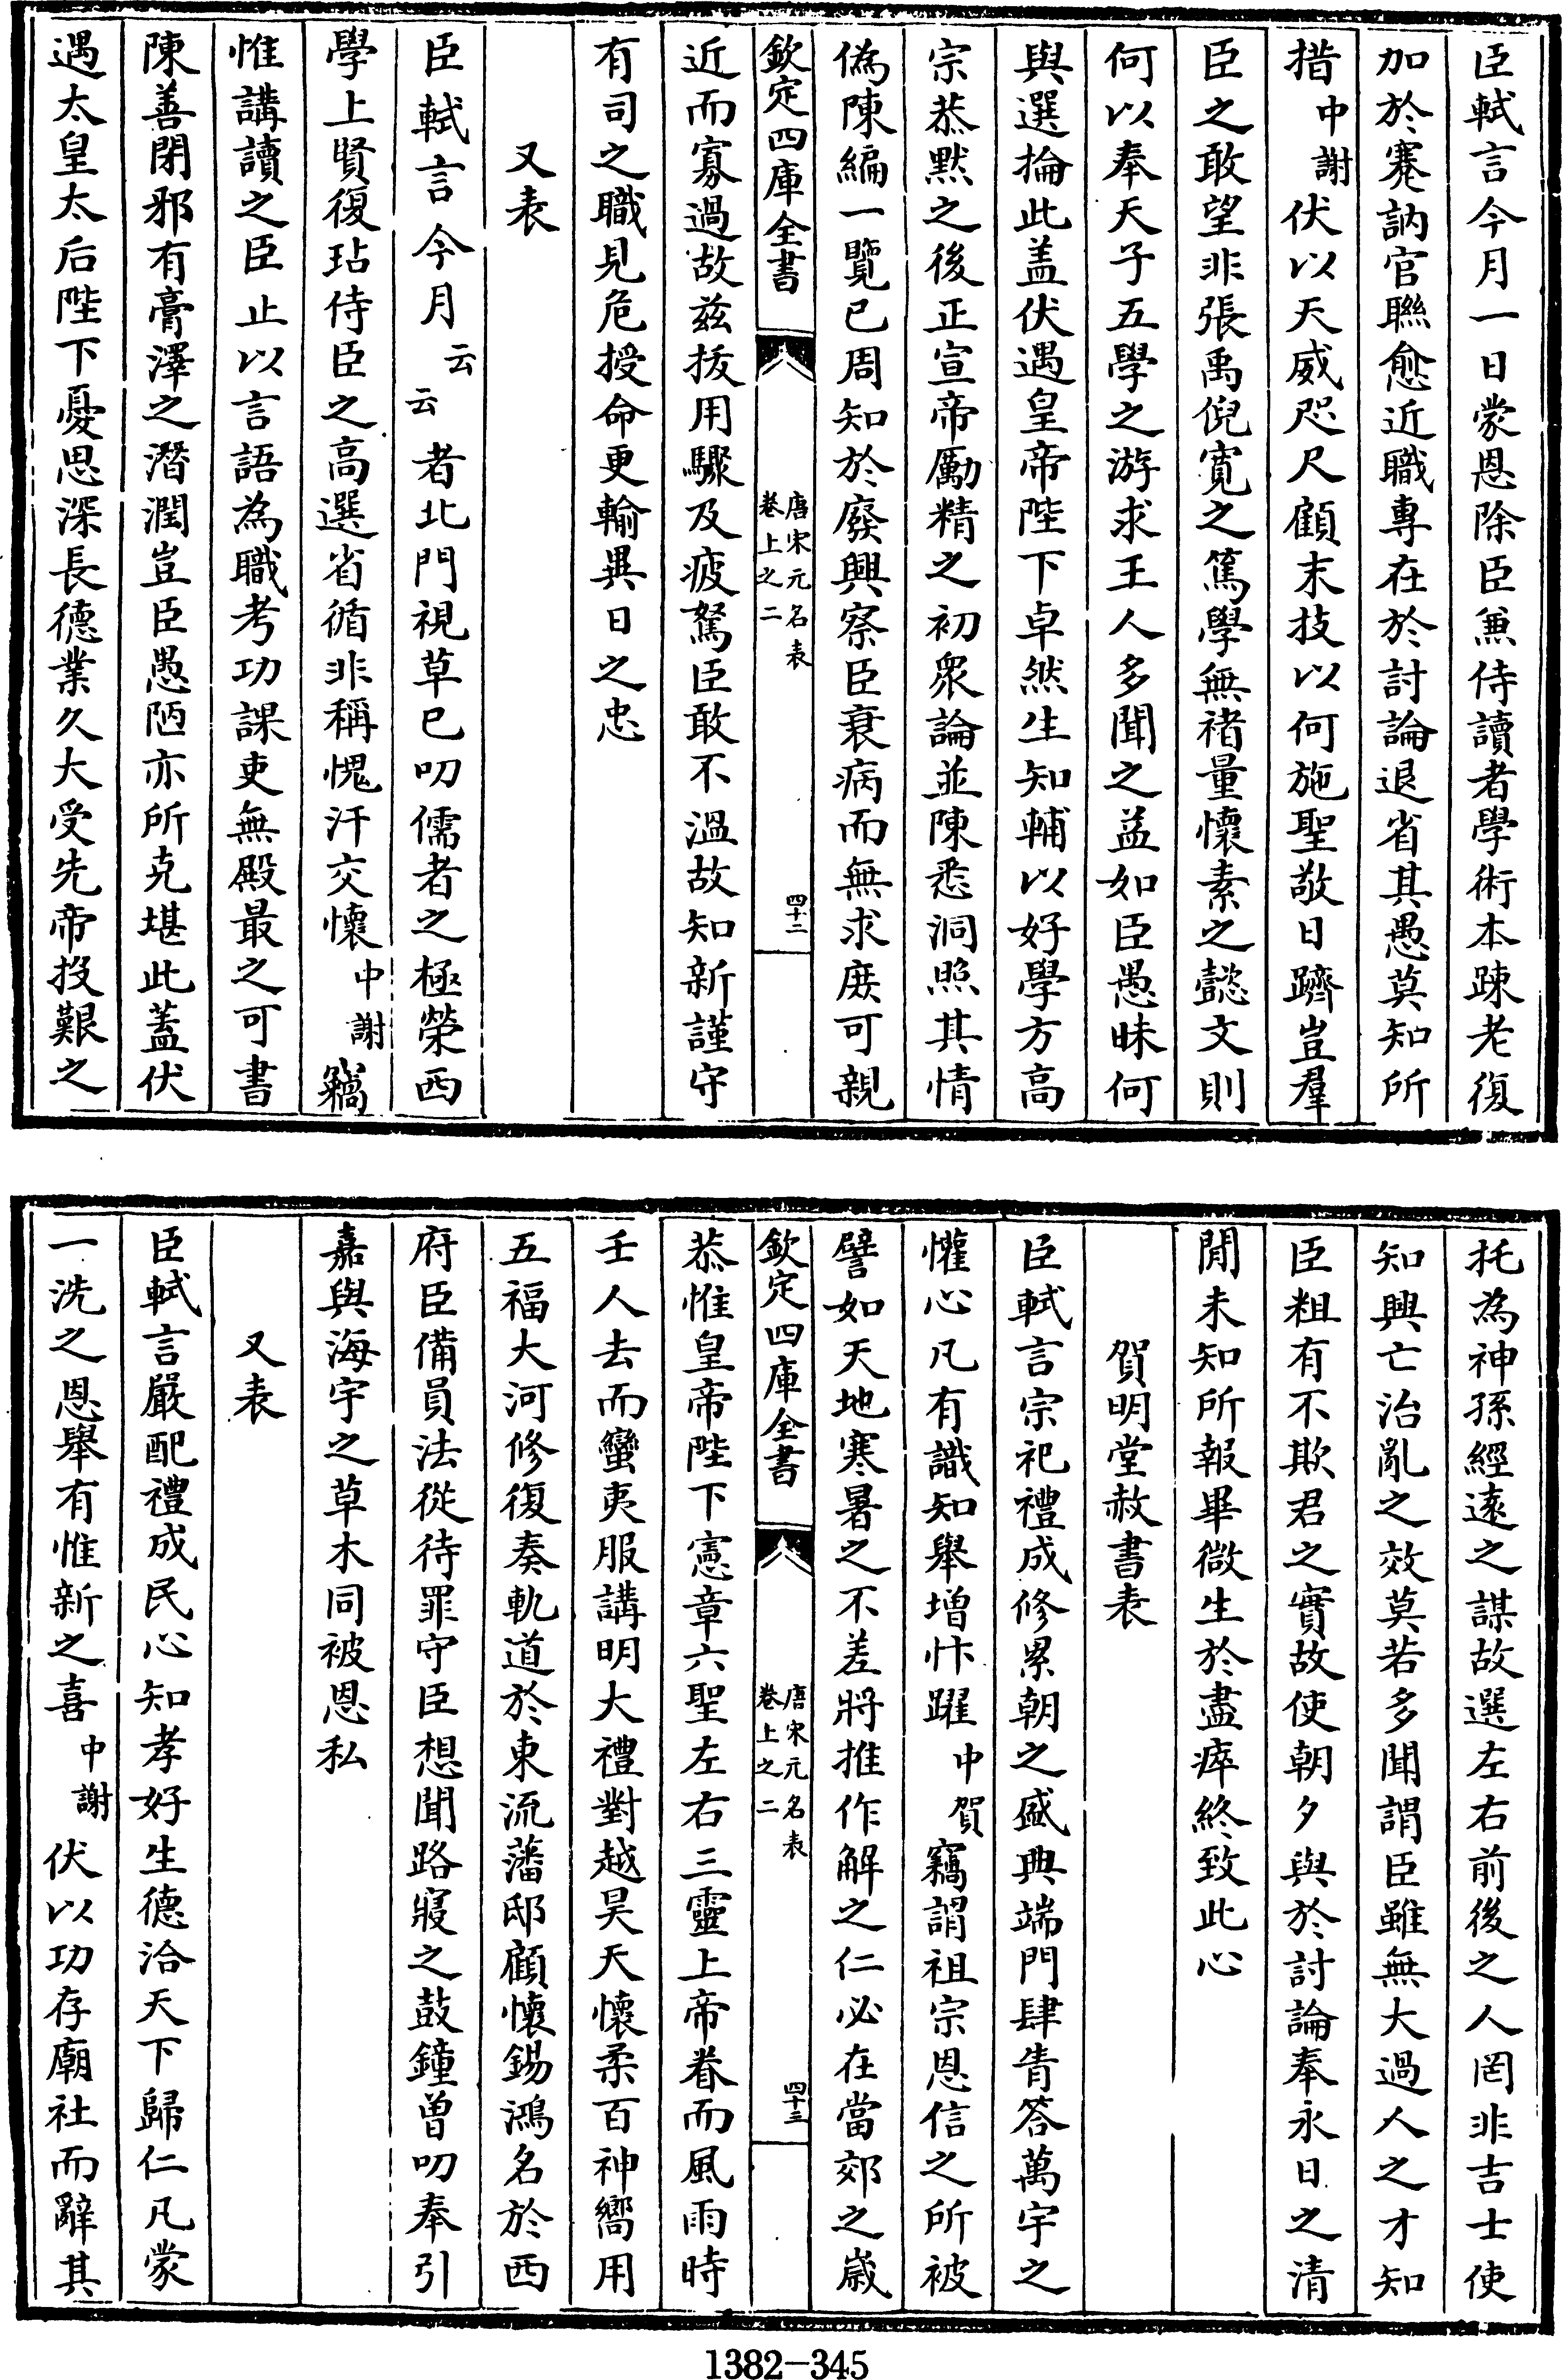 臣軾言今月一日蒙恩除臣兼侍讀者學術本疎老復
加於蹇訥官聯愈近職專在於討論退省其愚莫知所
措中謝伏以天威咫尺顧末技以何施聖敬日躋豈羣
臣之敢望非張禹倪寛之篤學無褚量懷素之懿文則
何以奉天子五學之游求王人多聞之益如臣愚昧何
與選掄此盖伏遇皇帝陛下卓然生知輔以好學方高
宗恭默之後正宣帝勵精之初衆論並陳悉洞照其情
偽陳編一覽已周知於廢興察臣衰病而無求庻可親
欽定四庫全書
唐宋元名表
卷上之二
四十二
近而寡過故兹拔用驟及疲駑臣敢不溫故知新謹守
有司之職見危授命更輸異日之忠
又表
臣軾言今月云云者北門視草已叨儒者之極榮西
學上賢復玷侍臣之高選省循非稱愧汗交懷中謝竊
惟講讀之臣止以言語為職考功課吏無殿最之可書
陳善閉邪有膏澤之潛潤豈臣愚陋亦所克堪此葢伏
遇太皇太后陛下憂思深長德業久大受先帝投艱之
托為神孫經遠之謀故選左右前後之人罔非吉士使
知興亡治亂之效莫若多聞謂臣雖無大過人之才知
臣粗有不欺君之實故使朝夕與於討論奉永日之清
閒未知所報畢微生於盡瘁終致此心
賀明堂赦書表
臣軾言宗祀禮成修累朝之盛典端門肆眚答萬宇之
懽心凡有識知舉增忭躍中賀竊謂祖宗恩信之所被
譬如天地寒暑之不差將推作解之仁必在當郊之歲
欽定四庫全書
唐宋元名表
卷上之二
四十三
恭惟皇帝陛下憲章六聖左右三靈上帝眷而風雨時
壬人去而蠻夷服講明大禮對越昊天懷柔百神嚮用
五福大河修復奏軌道於東流藩邸顧懷錫鴻名於西
府臣備員法從待罪守臣想聞路寢之鼓鐘曾叨奉引
嘉與海宇之草木同被恩私
又表
臣軾言嚴配禮成民心知孝好生德洽天下歸仁凡蒙
一洗之恩舉有惟新之喜中謝伏以功存廟社而辭其
1382-345